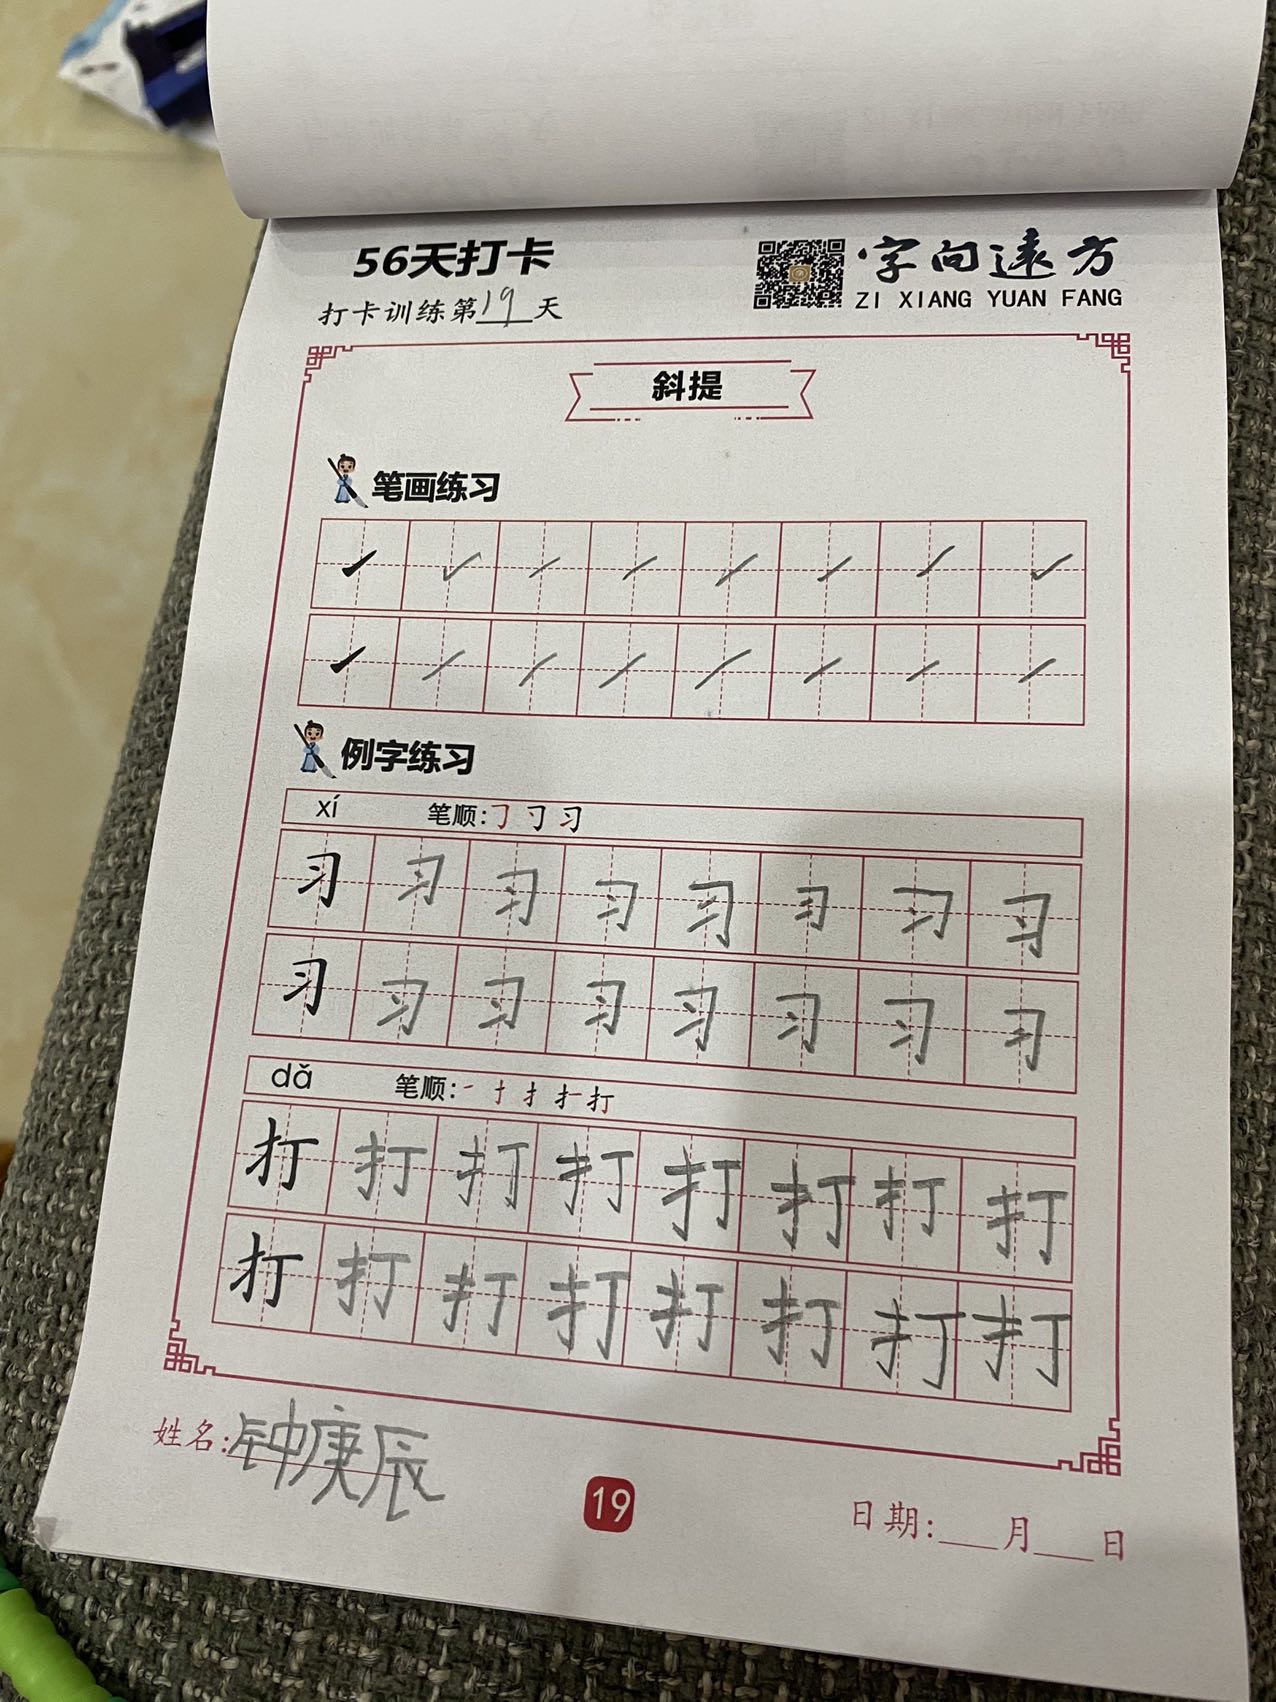 56天打卡
字向遠方
打卡训练第19天
ZI XIANG YUAN FANG
斜提
笔画练习
例字练习
xí 笔顺:
习 习 习 习 习 习 习 习
习 习 习 习 习 习 习 习
dǎ 笔顺:
打 打 打 打 打 打 打 打
打 打 打 打 打 打 打 打
姓名:钟庚辰
19
日期:___月___日